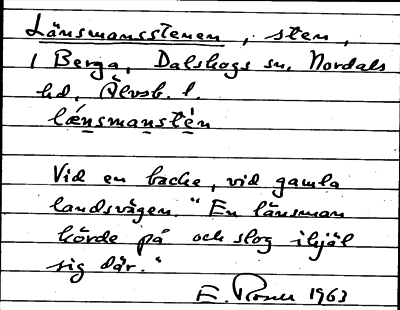 Länsmansstenen, sten,
/ Berga, Dalskogs sn, Nordals
hd, Älvsb. l.
lǽnsmanstèn
Vid en backe, vid gamla
landsvägen. "En länsman
körde på och slog ihjäl
sig där."
E. 1963